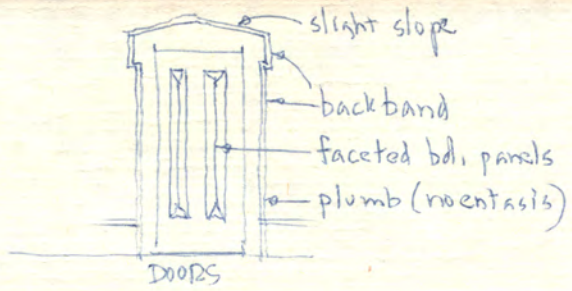 slight slope
backband
faceted bd. panels
plumb (no entasis)
DOORS